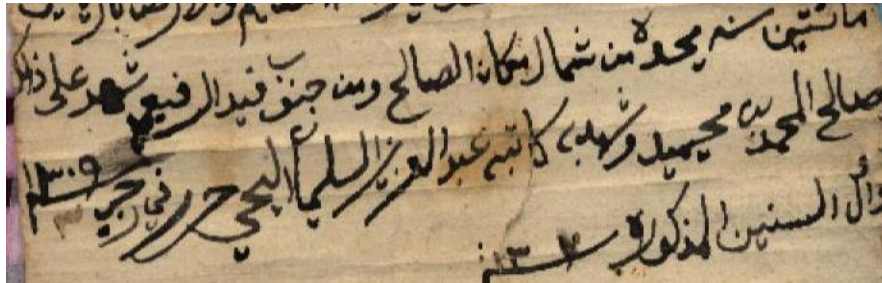 مائتين سنه يحده من شمال مكان الصالح ومن جنوب قيد الرفيعي شهد على ذلك
صالح المحمد بن محيميد وشهد به كاتبه عبد العزيز السليمان اليحيى حرر في رجب سنة ١٣٠٩
وائل السنين المذكوره سنة ١٣٠٢